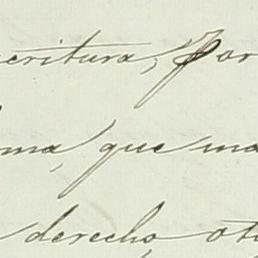 critura, Por
ma, que ma
derecho, oto